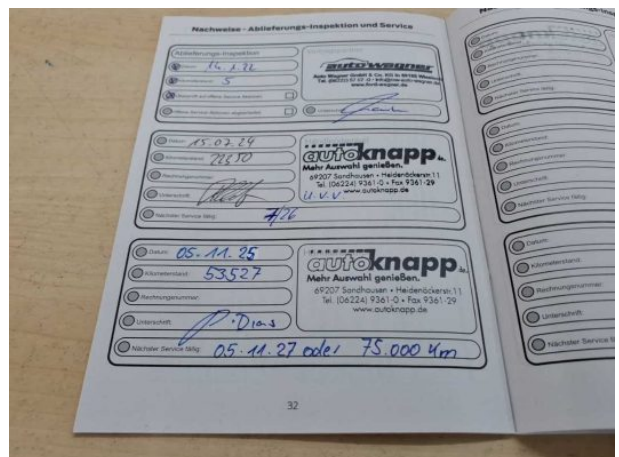 Nachweise - Ablieferungs-Inspektion und Service
Ablieferungs-Inspektion
Datum: 14.1.22
Kilometerstand: 5
auto wagner
Auto Wagner GmbH & Co. KG
www.ford-wagner.de
Datum: 15.07.24
Kilometerstand: 22650
Rechnungsnummer:
Unterschrift:
Nächster Service fällig: 7/26
autoknapp
Mehr Auswahl genießen.
69207 Sandhausen • Heidenäckerstr. 11
Tel. (06224) 9361-0 • Fax 9361-29
www.autoknapp.de
U.V.V
Datum: 05.11.25
Kilometerstand: 53527
Rechnungsnummer:
Unterschrift: P. Dias
Nächster Service fällig: 05.11.27 oder 75.000 km
autoknapp
Mehr Auswahl genießen.
69207 Sandhausen • Heidenäckerstr. 11
Tel. (06224) 9361-0 • Fax 9361-29
www.autoknapp.de
32
Datum:
Kilometerstand:
Rechnungsnummer:
Unterschrift:
Nächster Service fällig:
Datum:
Kilometerstand:
Rechnungsnummer:
Unterschrift:
Nächster Service